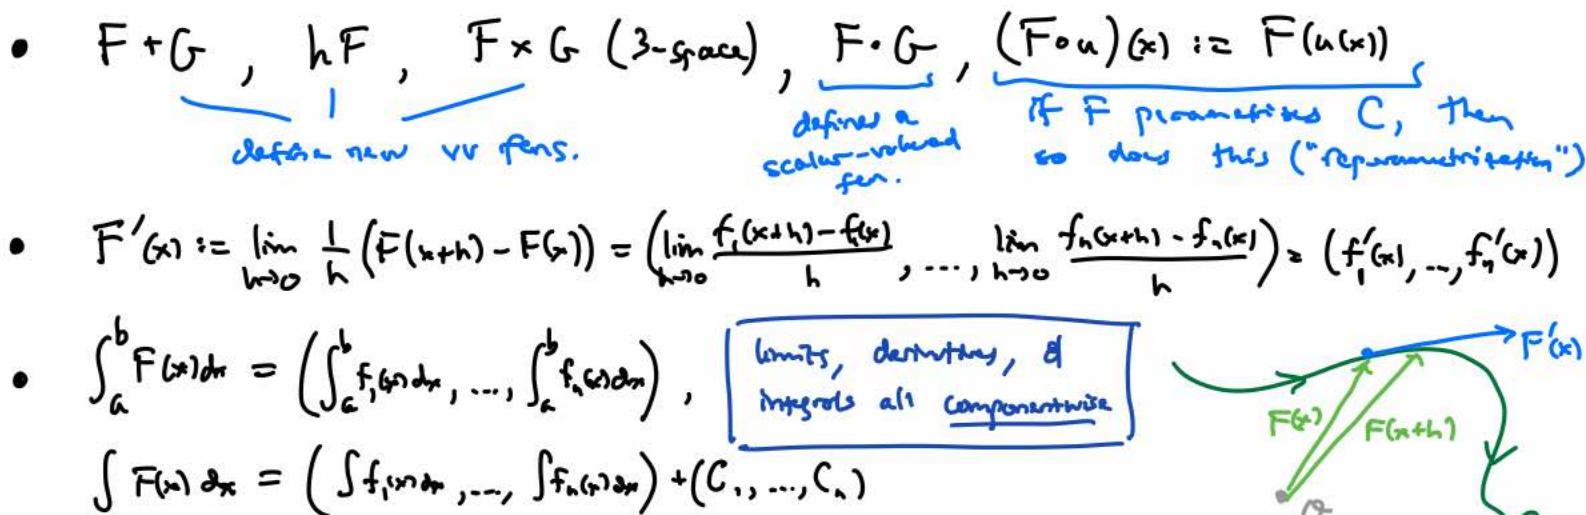 • F+G , hF , F×G (3-space) , F·G , (F∘u)(x) := F(u(x))
define new vv fcns.
defines a scalar-valued fcn.
if F parametrizes C, then
so does this ("reparametrization")
• F′(x) := lim_{h→0} 1/h (F(x+h) − F(x)) = (lim_{h→0} (f₁(x+h) − f₁(x))/h , ..., lim_{h→0} (fₙ(x+h) − fₙ(x))/h) = (f₁′(x), ..., fₙ′(x))
• ∫_a^b F(x)dx = (∫_a^b f₁(x)dx , ..., ∫_a^b fₙ(x)dx) ,
limits, derivatives, &
integrals all componentwise
∫ F(x) dx = (∫f₁(x)dx , ..., ∫fₙ(x)dx) + (C₁, ..., Cₙ)
F′(x)
F(x)
F(x+h)